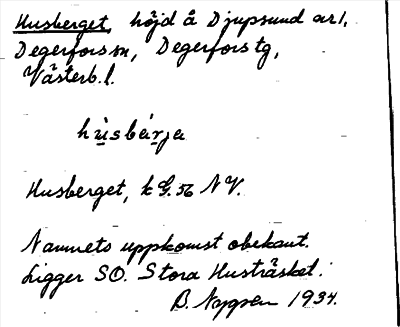 Husberget, höjd å Djupsund ar 1,
Degerfors sn, Degerfors tg,
Västerb. l.
hùsbárja
Husberget, k G. 56 NV.
Namnets uppkomst obekant.
Ligger SO. Stora Husträsket.
B. 1934.